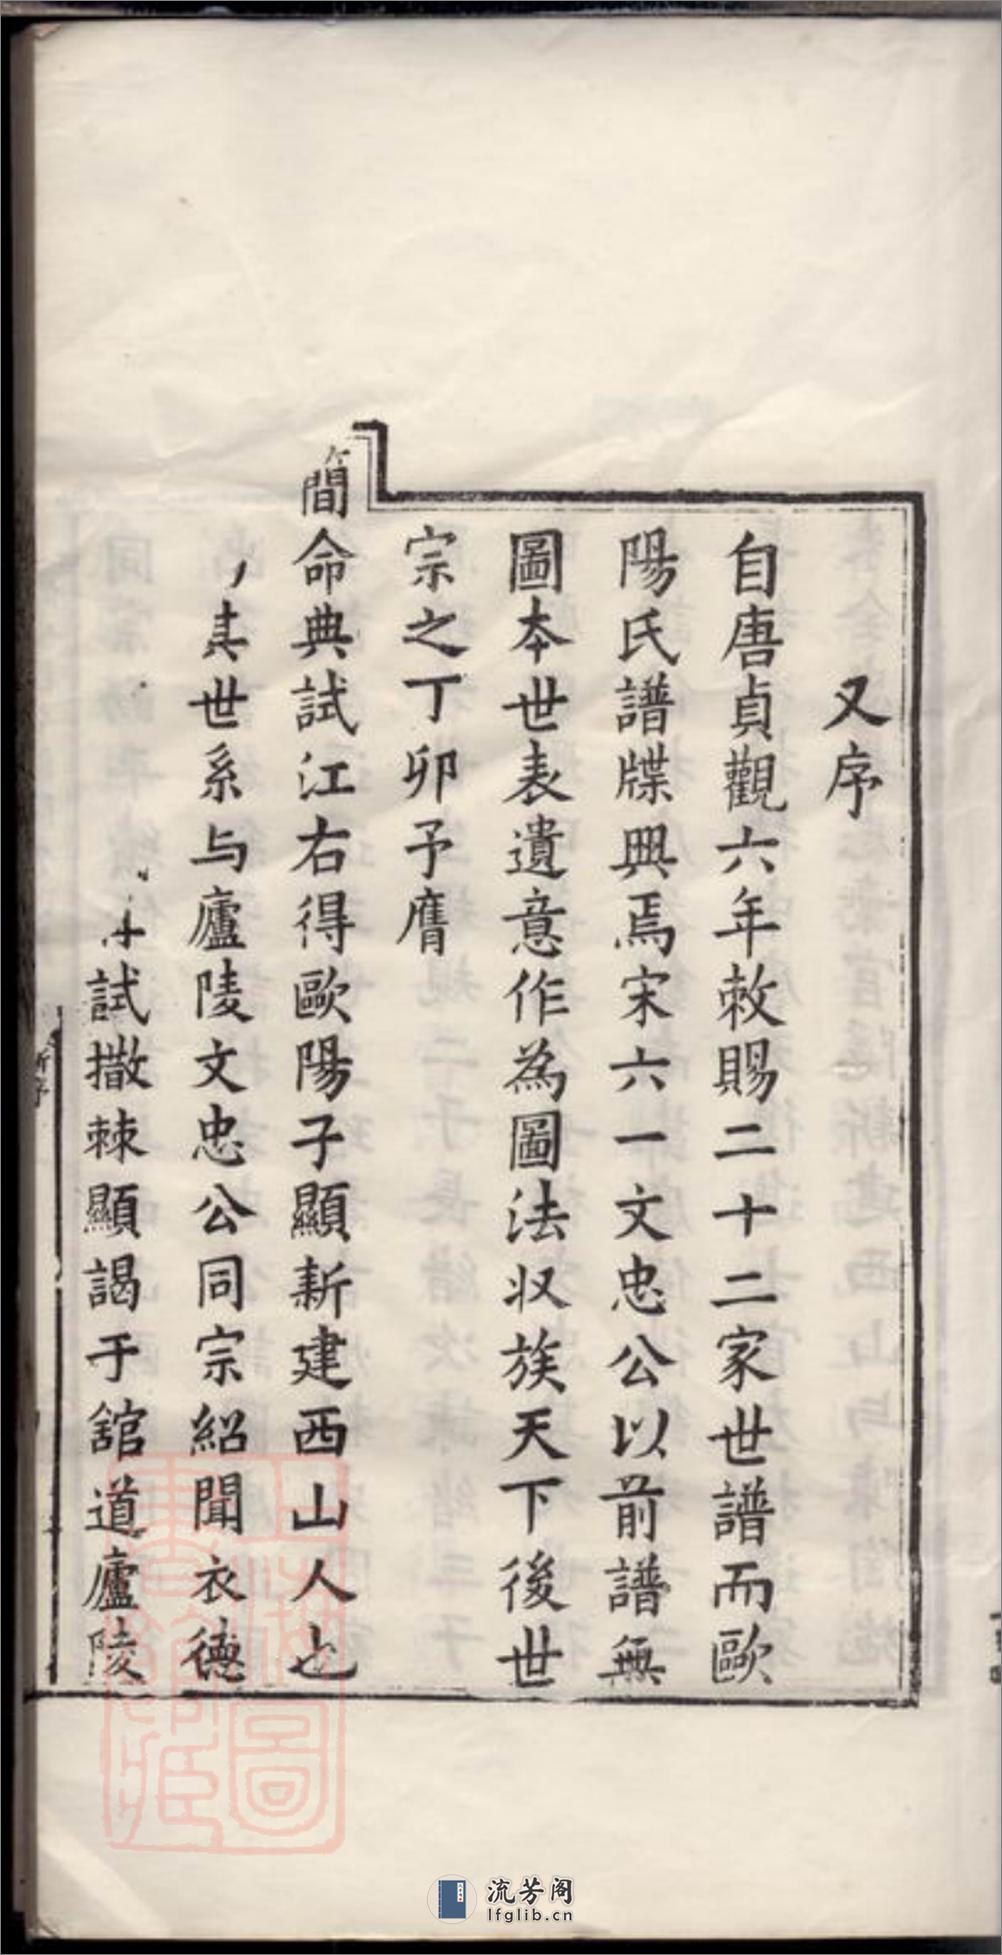 又序
自唐貞觀六年敕賜二十二家世譜而歐
陽氏譜牒興焉宋六一文忠公以前譜無
圖本世表遺意作為圖法収族天下後世
宗之丁卯予膺
簡命典試江右得歐陽子顯新建西山人也
其世系与廬陵文忠公同宗紹聞衣德
試撒棘顯謁于舘道廬陵
流芳阁
lfglib.cn